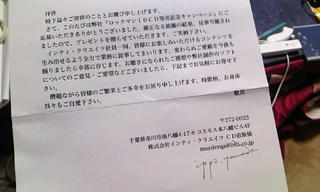 拝啓
時下益々ご清祥のこととお慶び申し上げます。
さて、このたびは弊社の「ロックマン10CD発売記念キャンペーン」にご
応募いただきありがとうございました。厳正なる抽選の結果、見事当選され
ましたので、プレゼントを贈らせていただきます。ご笑納下さい。
インティ・クリエイツ社員一同、皆様にお楽しみいただけるコンテンツを
生み出せるよう全力で業務に従事してまいります。変わらぬご愛顧を今後も
賜りましたら幸甚に存じます。お聴きになられたご感想や弊社制作のソフト
についてのご意見・ご要望などございましたら、下記までお気軽にお寄せ下
さい。
末筆ながら皆様のご繁栄とご多幸をお祈り申し上げます。時節柄、お身体
且々もご自愛下さい。
敬具
〒272-0023
千葉県市川市南八幡4-17-8 コスモス本八幡ビル4F
株式会社インティ・クリエイツ CD直販係
morderqa@inti.co.jp
ippo.yamada